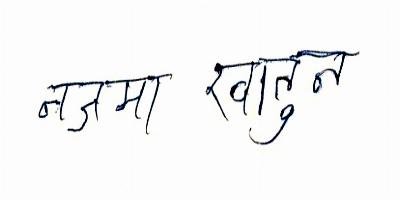 नजमा खातुन